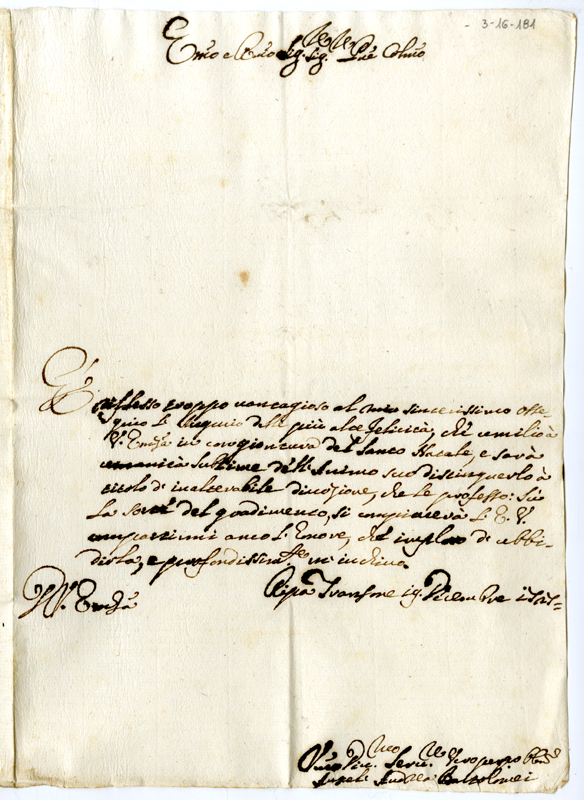 3-16-181
Emo e Rmo Sig. Sig. Pne Colmo
È riflesso troppo vantagioso al mio sincerissimo osse-
quio l'augurio delle più alte felicità, che umilio à
V. Emza in congiontura del Santo Natale, e sarà
umanità sublime dell'Animo suo distinguerlo à
titolo d'inalterabile divozione, che le professo: Sia
la del gradimento, si compiacerà l'E. V.
compartirmi anco l'onore, che imploro di ubbi-
dirla, e profondissimte m'inchino.
Ripa Transone 19. Decembre
V. Emza
Serv.
Andrea Bartolomei